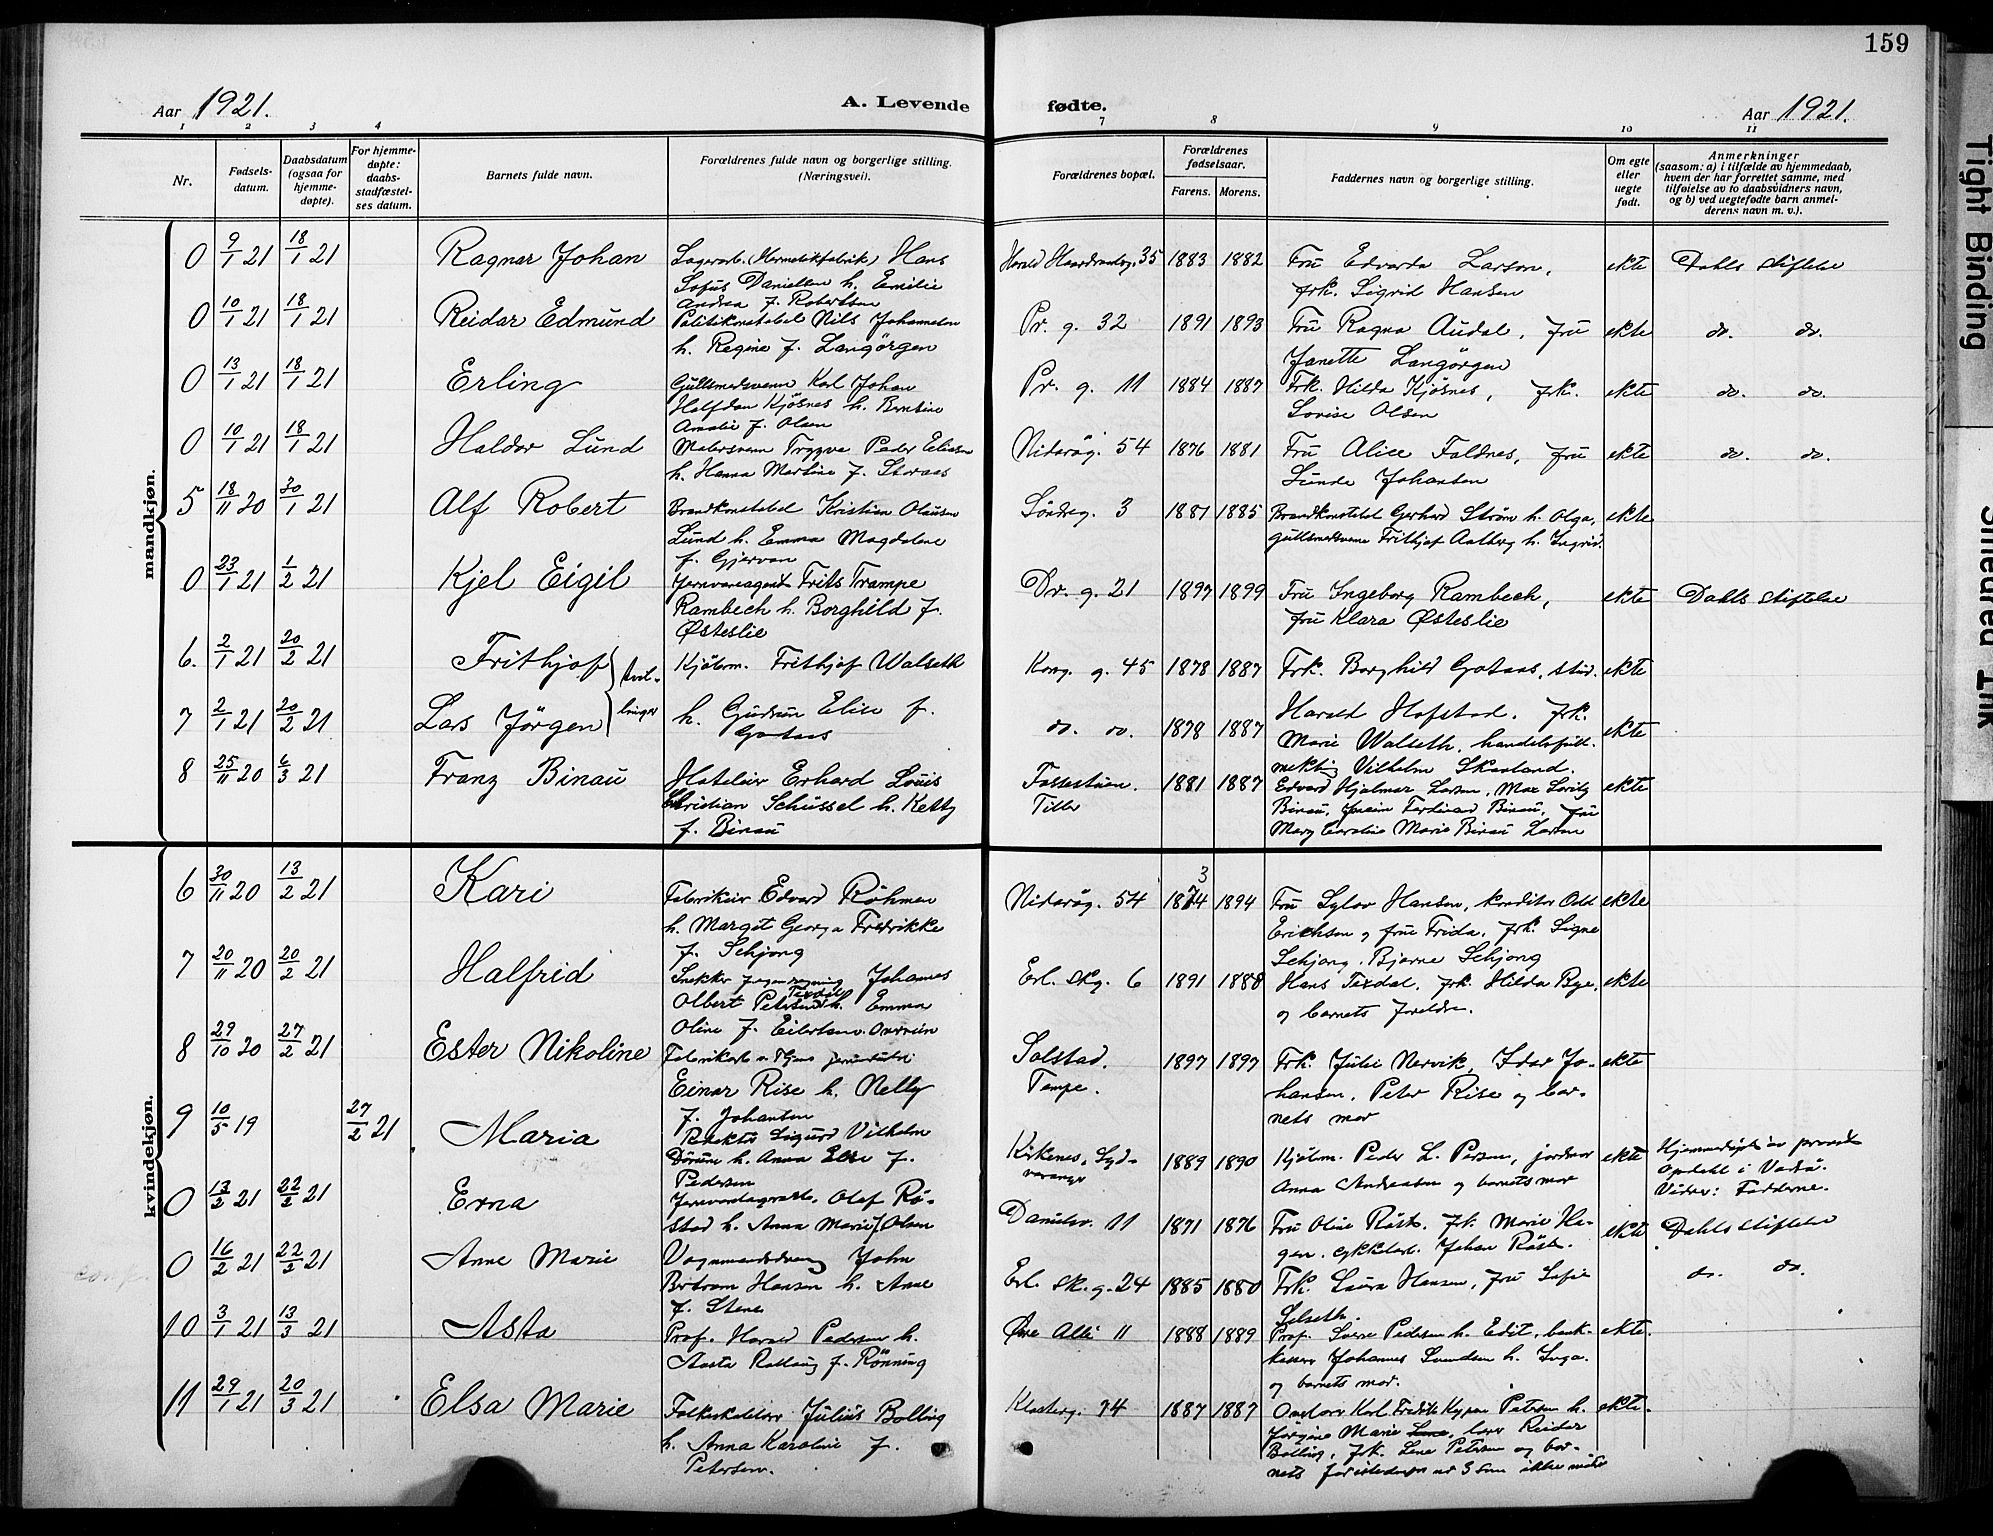 159
Aar 1921.
A. Levende
fødte.
Aar 1921.
1 2 3 4
7 8 9 10 11
Nr.
Fødsels-
datum.
Daabsdatum
(ogsaa for
hjemme-
døpte).
For hjemme-
døpte:
daabs-
stadfæstel-
ses datum.
Barnets fulde navn.
Forældrenes fulde navn og borgerlige stilling.
(Næringsvei).
Forældrenes bopæl.
Forældrenes
fødselsaar.
Farens. Morens.
Faddernes navn og borgerlige stilling.
Om egte
eller
uegte
født.
Anmerkninger
(saasom: a) i tilfælde av hjemmedaab,
hvem der har forrettet samme, med
tilføielse av to daabsvidners navn,
og b) ved uegtefødte barn anmel-
derens navn m. v.).
mandkjøn.
0 9/1 21 18/1 21 Ragnar Johan
Lagerarb. (Hermetikfabrik) Hans
Sofus Danielsen h. Emilie
Andrea f. Robertsen
Harald Haardraadesg. 35 1883 1882
Fru Edvarda Larson,
frk. Sigrid Hansen
ekte Dahls stiftelse
0 10/1 21 18/1 21 Reidar Edmund
Politikonstabel Nils Johannesen
h. Regine f. Langörgen
Pr. g. 32 1891 1893
Fru Ragna Audal, fru
Janette Langörgen
ekte do. do.
0 13/1 21 18/1 21 Erling
Gullsmedsvenn Karl Johan
Halfdan Kjösnes h. Berntine
Amalie f. Olsen
Pr. g. 11 1884 1887
Frk. Hilda Kjösnes, frk.
Lovise Olsen
ekte do. do.
0 10/1 21 18/1 21 Haldor Lund
Malersvenn Trygve Peder Eliasen
h. Hanna Martine f. Storaas
Nidarög. 54 1876 1881
Fru Alice Faldnes, fru
Lunda Johansen
ekte do. do.
5 18/11 20 30/1 21 Alf Robert
Brandkonstabel Kristian Olausen
Lund h. Emma Magdalene
f. Gjervan
Söndreg. 3 1887 1885
Brandkonstabel Gerhard Ström h. Olga,
gullsmedsvenn Frithjof Aalberg h. Ingrid.
ekte
0 23/1 21 1/2 21 Kjel Eigil
Jernvareagent Frits Trampe
Rambech h. Borghild f.
Østeslie
Dr. g. 21 1897 1899
Fru Ingeborg Rambech,
fru Klara Østeslie
ekte Dahls stiftelse
6. 2/1 21 20/2 21 Frithjof
Kjöbm. Frithjof Walseth
Kong. g. 45 1878 1887
Frk. Borghild Gotaas, stud.
ekte
tvil-
linger
7 2/1 21 20/2 21 Lars Jörgen
h. Gudrun Elise f.
Gotaas
do. do. 1878 1887
Harald Hofstad. Frk.
Marie Walseth, handelsfull-
mektig Vilhelm Skaaland.
ekte
8 25/11 20 6/3 21 Franz Binau
Hoteleier Erhard Louis
Christian Schüssel h. Ketty
f. Binau
Fossestuen.
Tiller
1881 1887
Edvard Hjalmar Larsen, Max Loritz
Binau, Joacim Ferdinand Binau, fru
Mary Caroline Marie Binau Larsen
ekte
kvindekjøn.
6 30/11 20 13/2 21 Kari
Fabrikeier Edvard Röhmen
h. Margit Georga Fredrikke
f. Schjong
Nidarög. 54 3 1874 1894
Fru Sylow Hansen, konditor Odd
Erichsen og frue Frida, frk. Signe
Schjong, Bjarne Schjong
ekte
7 20/11 20 20/2 21 Halfrid
Snekker Johannes
Olbert Petersen Texdal h. Emma
Oline f. Eilertsen Overvien
Erl. skg. 6 1891 1888
Hans Texdal, frk. Hilda Bye,
og barnets foreldre.
ekte
8 29/10 20 27/2 21 Ester Nikoline
Fabrikarb.
Einar Rise h. Nelly
f. Johansen
Solstad.
Tempe.
1897 1897
Frk. Julie Nervik, Idar Jo-
hansen, Peter Rise og bar-
nets mor
ekte
9 10/5 19 27/2 21 Maria
Redaktör Sigurd Vilhelm
Dörum h. Anna Else f.
Pedersen
Kirkenes, Syd-
varanger
1889 1890
Kjöbm. Peder L. Persen, jordmor
Anna Andreasen og barnets mor
ekte
Hjemmedöpt av provst
Opdahl i Vadsö.
Vidner: Fadderne.
0 13/2 21 22/2 21 Erna
Jernvaregross. Olaf Rö-
stad h. Anna Marie f. Olsen
Danielsv. 11 1871 1876
Fru Oline Röst. frk. Marie Ha-
gen. cykkelarb. Johan Röst.
ekte Dahls stiftelse
0 16/2 21 22/2 21 Anne Marie
Vognmandsdreng John
Bertram Hansen h. Anne
f. Stene
Erl. sk. g. 24 1885 1880
Frk. Laura Hansen, fru Sofie
Selseth.
do. do.
conf.
10 3/1 21 13/3 21 Asta
Prof. Harald Pedersen h.
Aasta Rotbaug f. Rönning
Övre Allé 11 1888 1889
Prof. Sverre Pedersen h. Edit, bank-
kasserer Johannes Svendsen h. Inga.
og barnets mor.
ekte.
11 29/1 21 20/3 21 Elsa Marie
Folkeskolelærer Julius Bolling
h. Anna Karoline f.
Petersen.
Klosterg. 74 1887 1887
Overlærer Karl Fredrik Petersen h.
Jörgine Marie Lena, lærer Reidar
Bolling, frk. Lena Petersen og bar-
nets far istedenfor nr 3 som ikke mötte
ekte.
Tight Binding
Smeared Ink